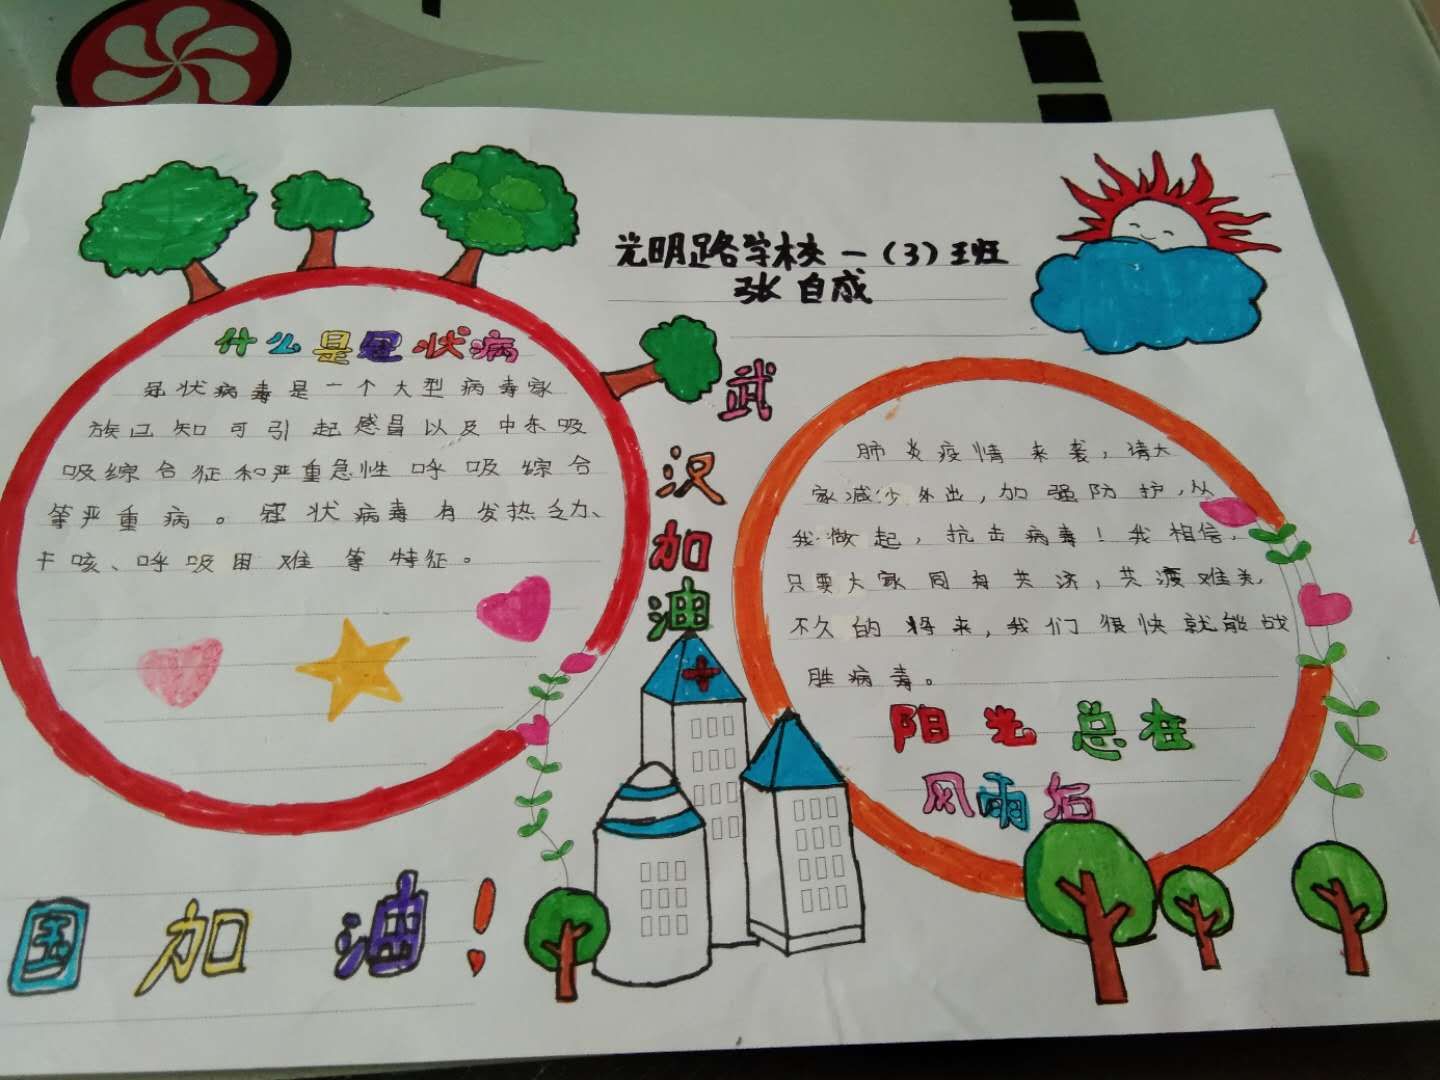 光明路学校一(3)班
张自成
什么是冠状病
冠状病毒是一个大型病毒家
族已知可引起感冒以及中东吸
吸综合征和严重急性呼吸综合
等严重病。冠状病毒有发热乏力、
干咳、呼吸困难等特征。
武
汉
加
油
肺炎疫情来袭,请大
家减少外出,加强防护,从
我做起,抗击病毒!我相信,
只要大家同舟共济,共渡难关,
不久的将来,我们很快就能战
胜病毒。
阳光总在
风雨后
国加油!